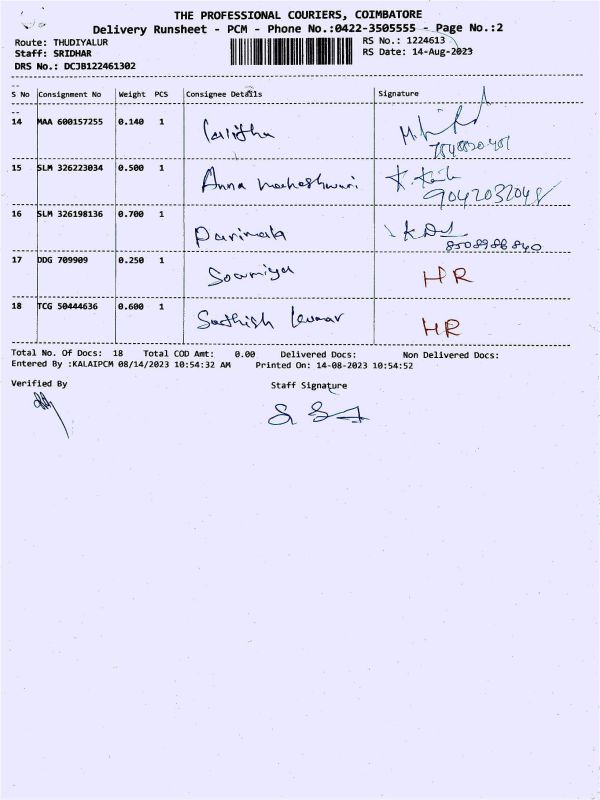 THE PROFESSIONAL COURIERS, COIMBATORE
Delivery Runsheet - PCM - Phone No.:0422-3505555 - Page No.:2
Route: THUDIYALUR RS No.: 1224613
Staff: SRIDHAR RS Date: 14-Aug-2023
DRS No.: DCJB122461302
S No Consignment No Weight PCS Consignee Details Signature
14 MAA 600157255 0.140 1 Lalitha
15 SLM 326223034 0.500 1 Anna maheshwari
9042032048
16 SLM 326198136 0.700 1 Parimala
8508986840
17 DDG 709909 0.250 1 Soumiya HR
18 TCG 50444636 0.600 1 Sathish kumar HR
Total No. Of Docs: 18 Total COD Amt: 0.00 Delivered Docs: Non Delivered Docs:
Entered By :KALAIPCM 08/14/2023 10:54:32 AM Printed On: 14-08-2023 10:54:52
Verified By Staff Signature